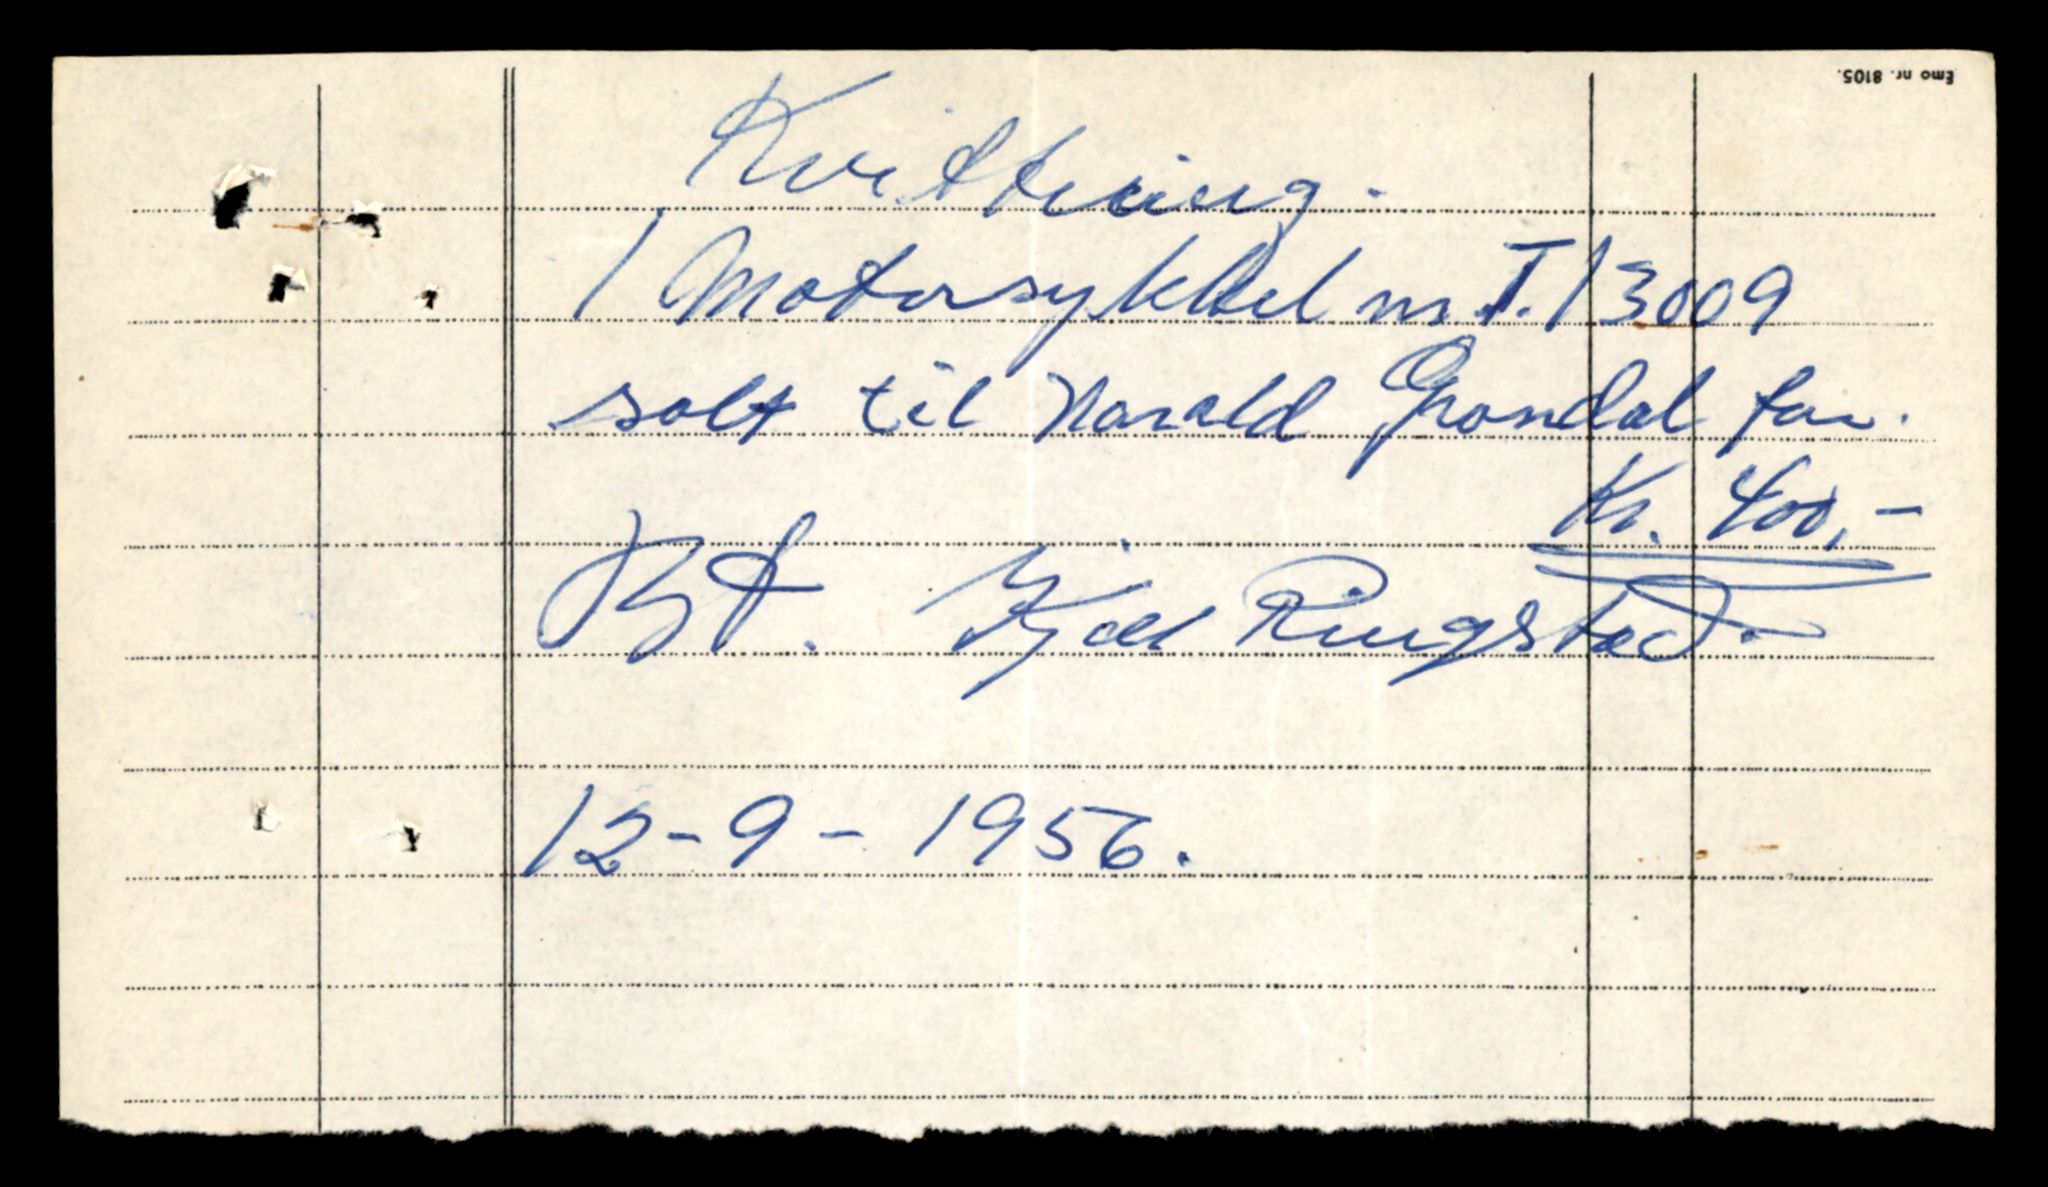 Emo nr. 8105.
Kvittering.
1 Motorsykkel m. T. 13009
solt til Harald Grondal for.
Kr. 400,-
Bt. Kjell Ringstad.
12-9-1956.